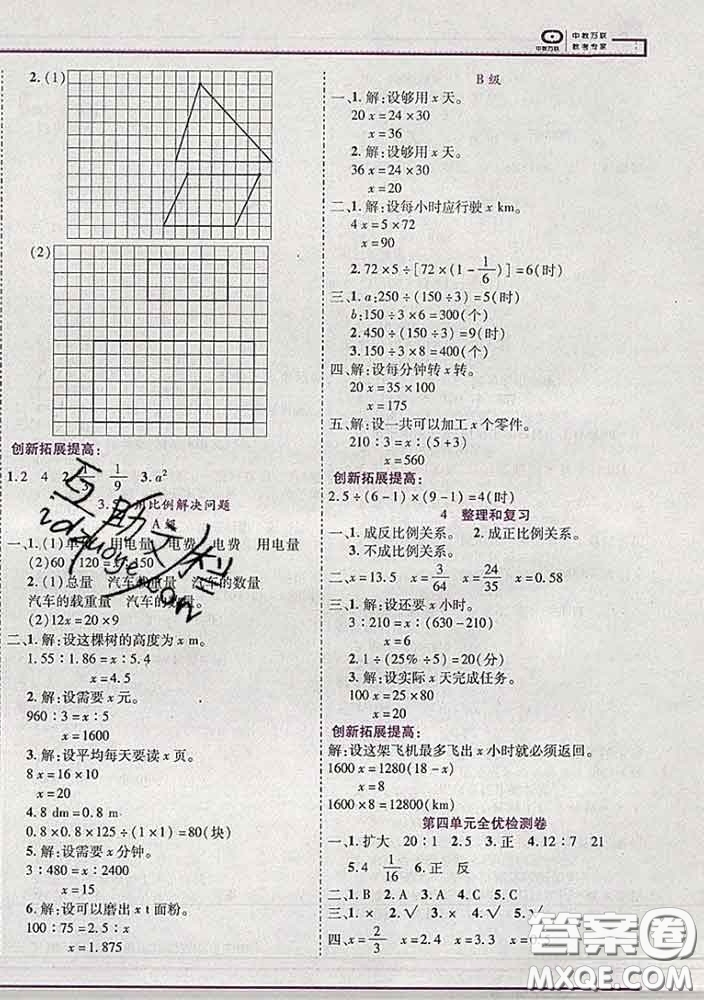 中教万联
中教万联
教考专家
2.(1)
(2)
创新拓展提高:
1.2 4 1/9 3.a²
比例解决问题
A 级
一、1.(1)单 用电量 电费 电费 用电量
(2)60 120 150
2.(1)总量 汽车的数量 汽车的数量
汽车的载重量 汽车的数量。
(2)12x=20×9
二、1.解:设这棵树的高度为 x m。
1.55:1.86=x:5.4
x=4.5
2.解:设需要 x 元。
960:3=x:5
x=1600
3.解:设平均每天要读 x 页。
8x=16×10
x=20
4.8 dm=0.8 m
0.8×0.9×125÷(1×1)=80(块)
5.解:设需要 x 分钟。
3:480=x:2400
x=15
6.解:设可以磨出 x t 面粉。
100:75=2.5:x
x=1.875
B 级
一、1.解:设够用 x 天。
20x=24×30
x=36
2.解:设够用 x 天。
36x=24×30
x=20
二、1.解:设每小时应行驶 x km。
4x=5×72
x=90
2.72×5÷[72×(1-1/6)]=6(时)
三、1.a:250÷(150÷3)=5(时)
b:150÷3×6=300(个)
2.450÷(150÷3)=9(时)
3.150÷3×8=400(个)
四、解:设每分钟转 x 转。
20x=35×100
x=175
五、解:设一共可以加工 x 个零件。
210:3=x:(5+3)
x=560
创新拓展提高:
2.5÷(6-1)×(9-1)=4(分)
4 整理和复习
一、1.成反比例关系。 2.成正比例关系。
3.不成比例关系。
二、x=13.5 x=3/64 x=24/35 x=0.58
三、1.解:设还要 x 小时。
3:210=x:(630-210)
x=6
2.1÷(25%÷5)=20(分)
3.解:设实际 x 天完成任务。
100x=25×80
x=20
创新拓展提高:
解:设这架飞机最多飞出 x 小时就必须返回。
1600x=1280(18-x)
x=8
1600×8=12800(km)
第四单元全优检测卷
一、1.扩大 20:1 2.5 3.正 4.12:7 21
5.4 1/16 6.正 反
二、1.B 2.A 3.A 4.C 5.C
三、1.× 2.√ 3.× 4.√ 5.√
四、x=2/3 x=2.4 x=3.
答案圈
MXQE.COM